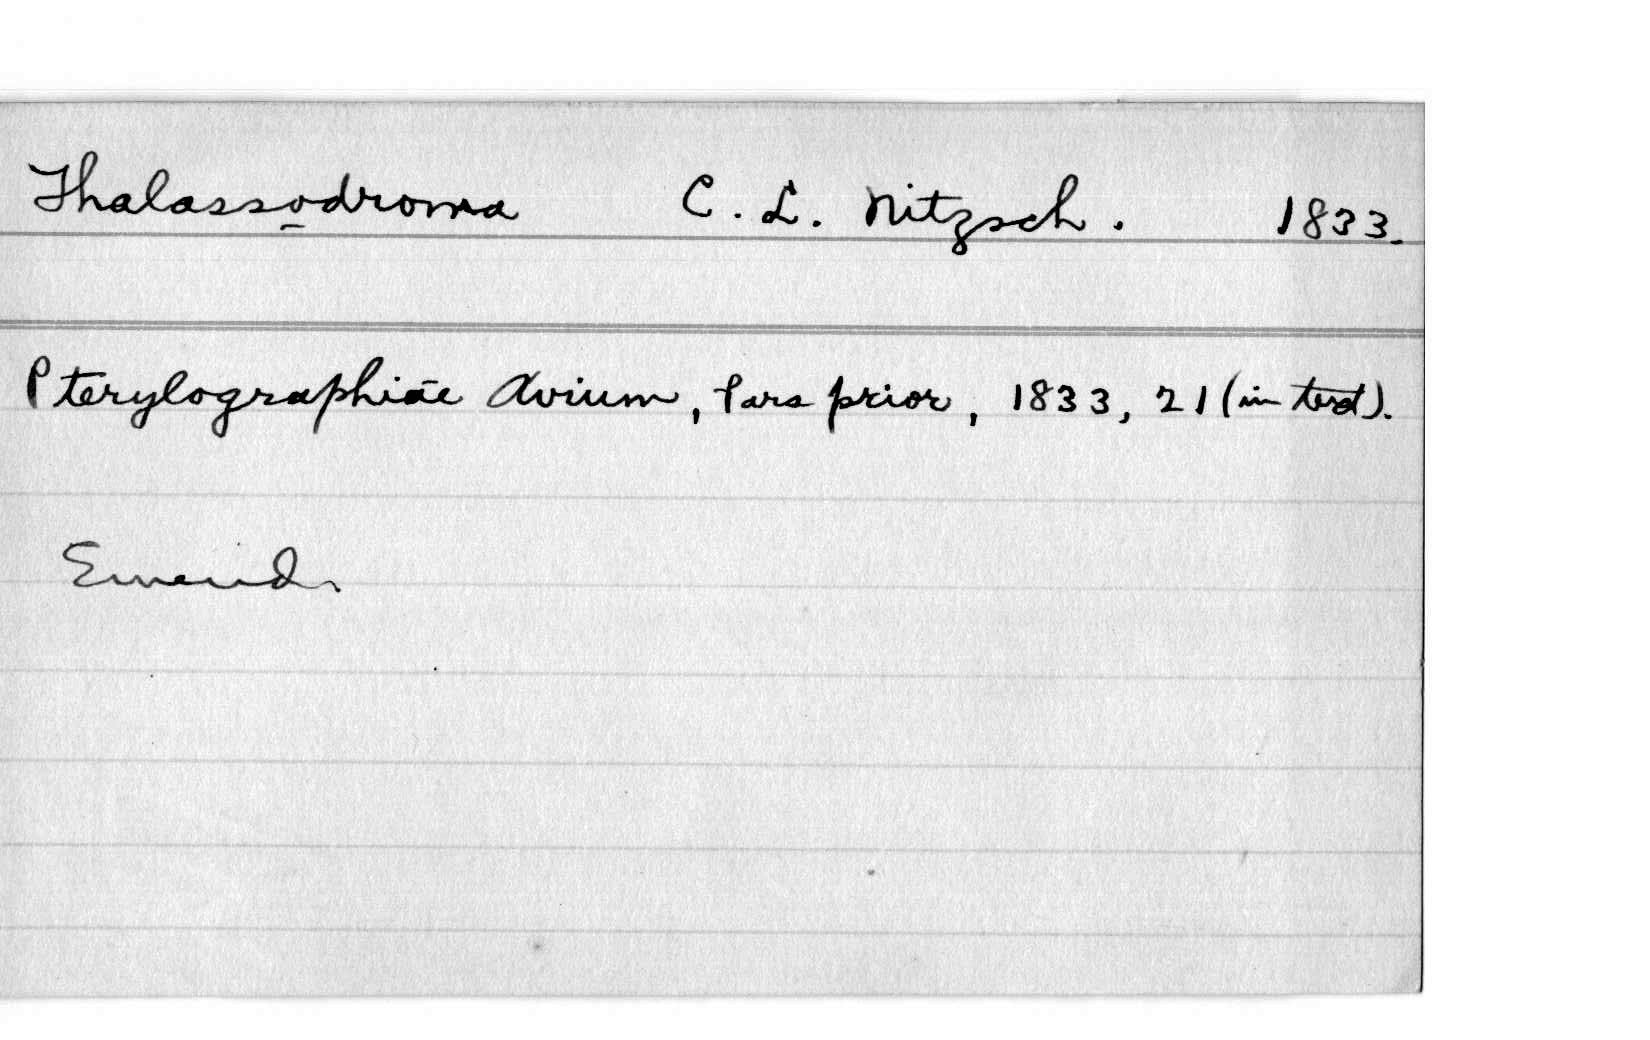 Thalassodroma C. L. Nitzsch. 1833.
Pterylographiae Avium, Pars prior, 1833, 21 (in text).
Emend.